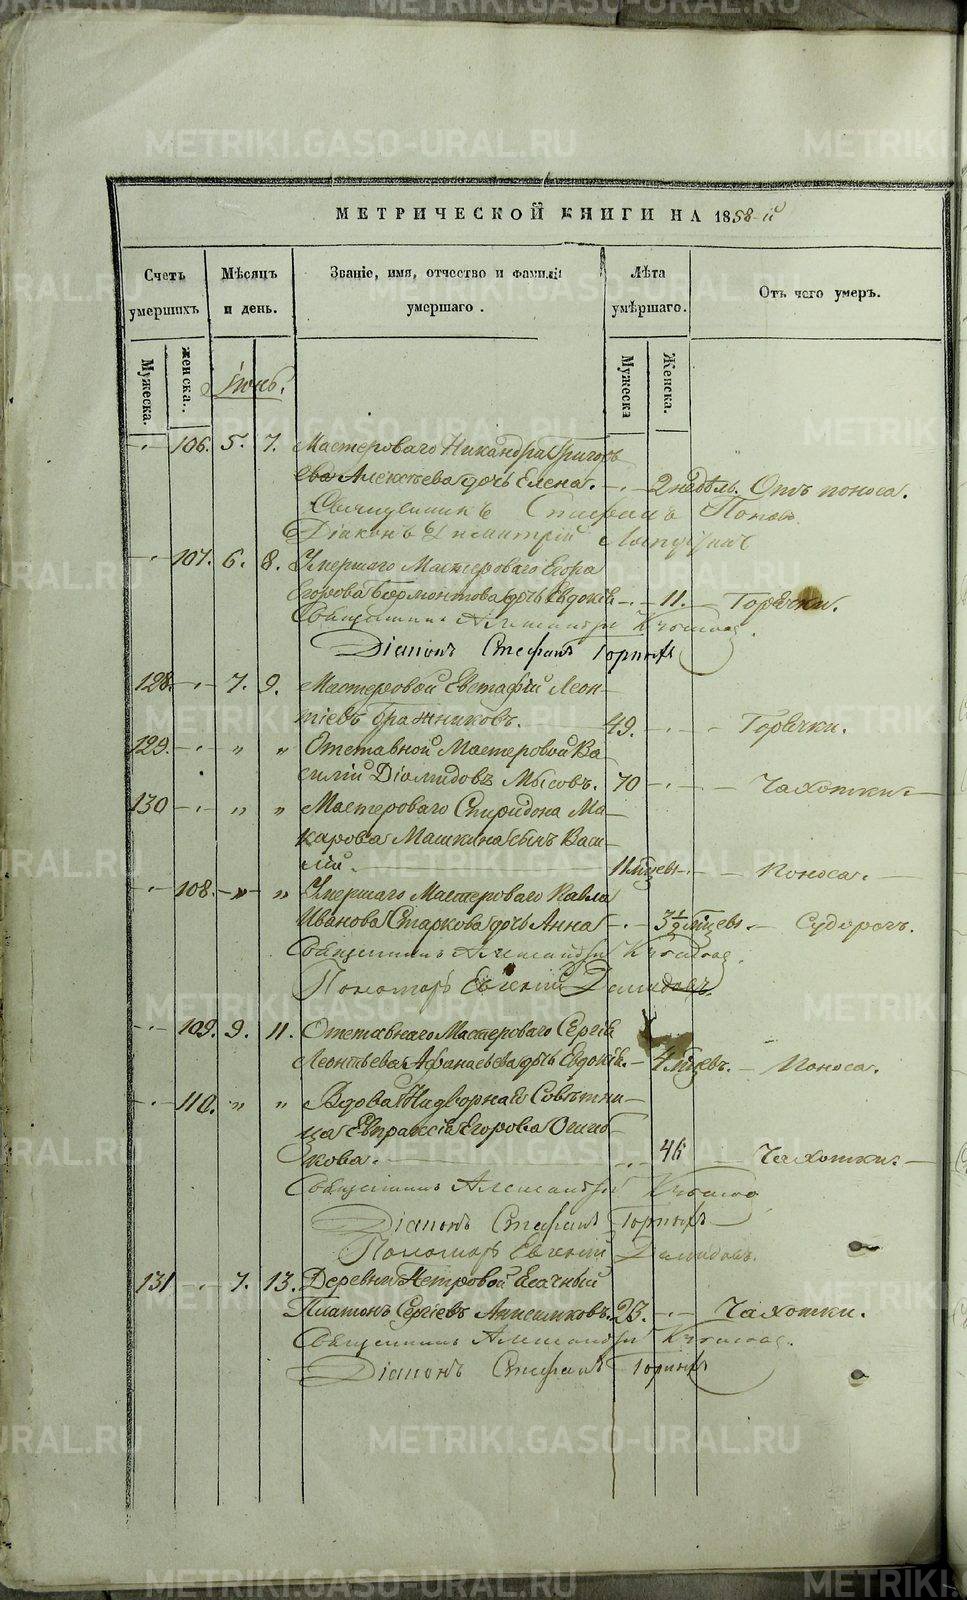 METRIKI.GASO-URAL.RU
МЕТРИЧЕСКОЙ КНИГИ НА 1858-й
Счетъ умершихъ
Мѣсяцъ и день.
Званіе, имя, отчество и фамилія умершаго.
Лѣта умѣршаго.
Отъ чего умеръ.
Мужеска.
женска.
Мужеска
Женска.
Іюнь.
106. 5. 7. Мастероваго Никандра Григорь
ева Алексѣева дочь Елена. 2 недѣль. Отъ поноса.
Священникъ Стефанъ Поповъ
Діаконъ Димитрій
107. 6. 8. Умершаго Мастероваго Егора
Егорова Бармонтова дочь Евдокія 11. Горячки.
Священникъ Александръ
Діаконъ Стефанъ Горныхъ
128. 7. 9. Мастеровой Евстафій Леон-
тіевъ Бражниковъ. 49. Горячки.
129. " " Отставной Мастеровой Ва-
силій Діомидовъ Мысовъ. 70 Чахотки.
130 " " Мастероваго Спиридона Ма-
карова Машкина сынъ Васи-
лій. 11 мѣсцевъ Поноса.
108. " " Умершаго Мастероваго Павла
Иванова Старкова дочь Анна 3½ мѣсцевъ Судорогъ.
Священникъ Александръ
Пономарь Евгеній Демидовъ.
109. 9. 11. Отставнаго Мастероваго Сергія
Леонтьева Афанасьева дочь Евдокія. 4 мѣсцевъ. Поноса.
110. " " Вдова Надворная Совѣтни-
ца Евпраксія Егорова
кова. 46 Чахотки.
Священникъ Александръ
Діаконъ Стефанъ Горныхъ
Пономарь Евгеній Демидовъ.
131 7. 13. Деревни Петровой
Платонъ Сергіевъ 23. Чахотки.
Священникъ Александръ
Діаконъ Стефанъ Горныхъ